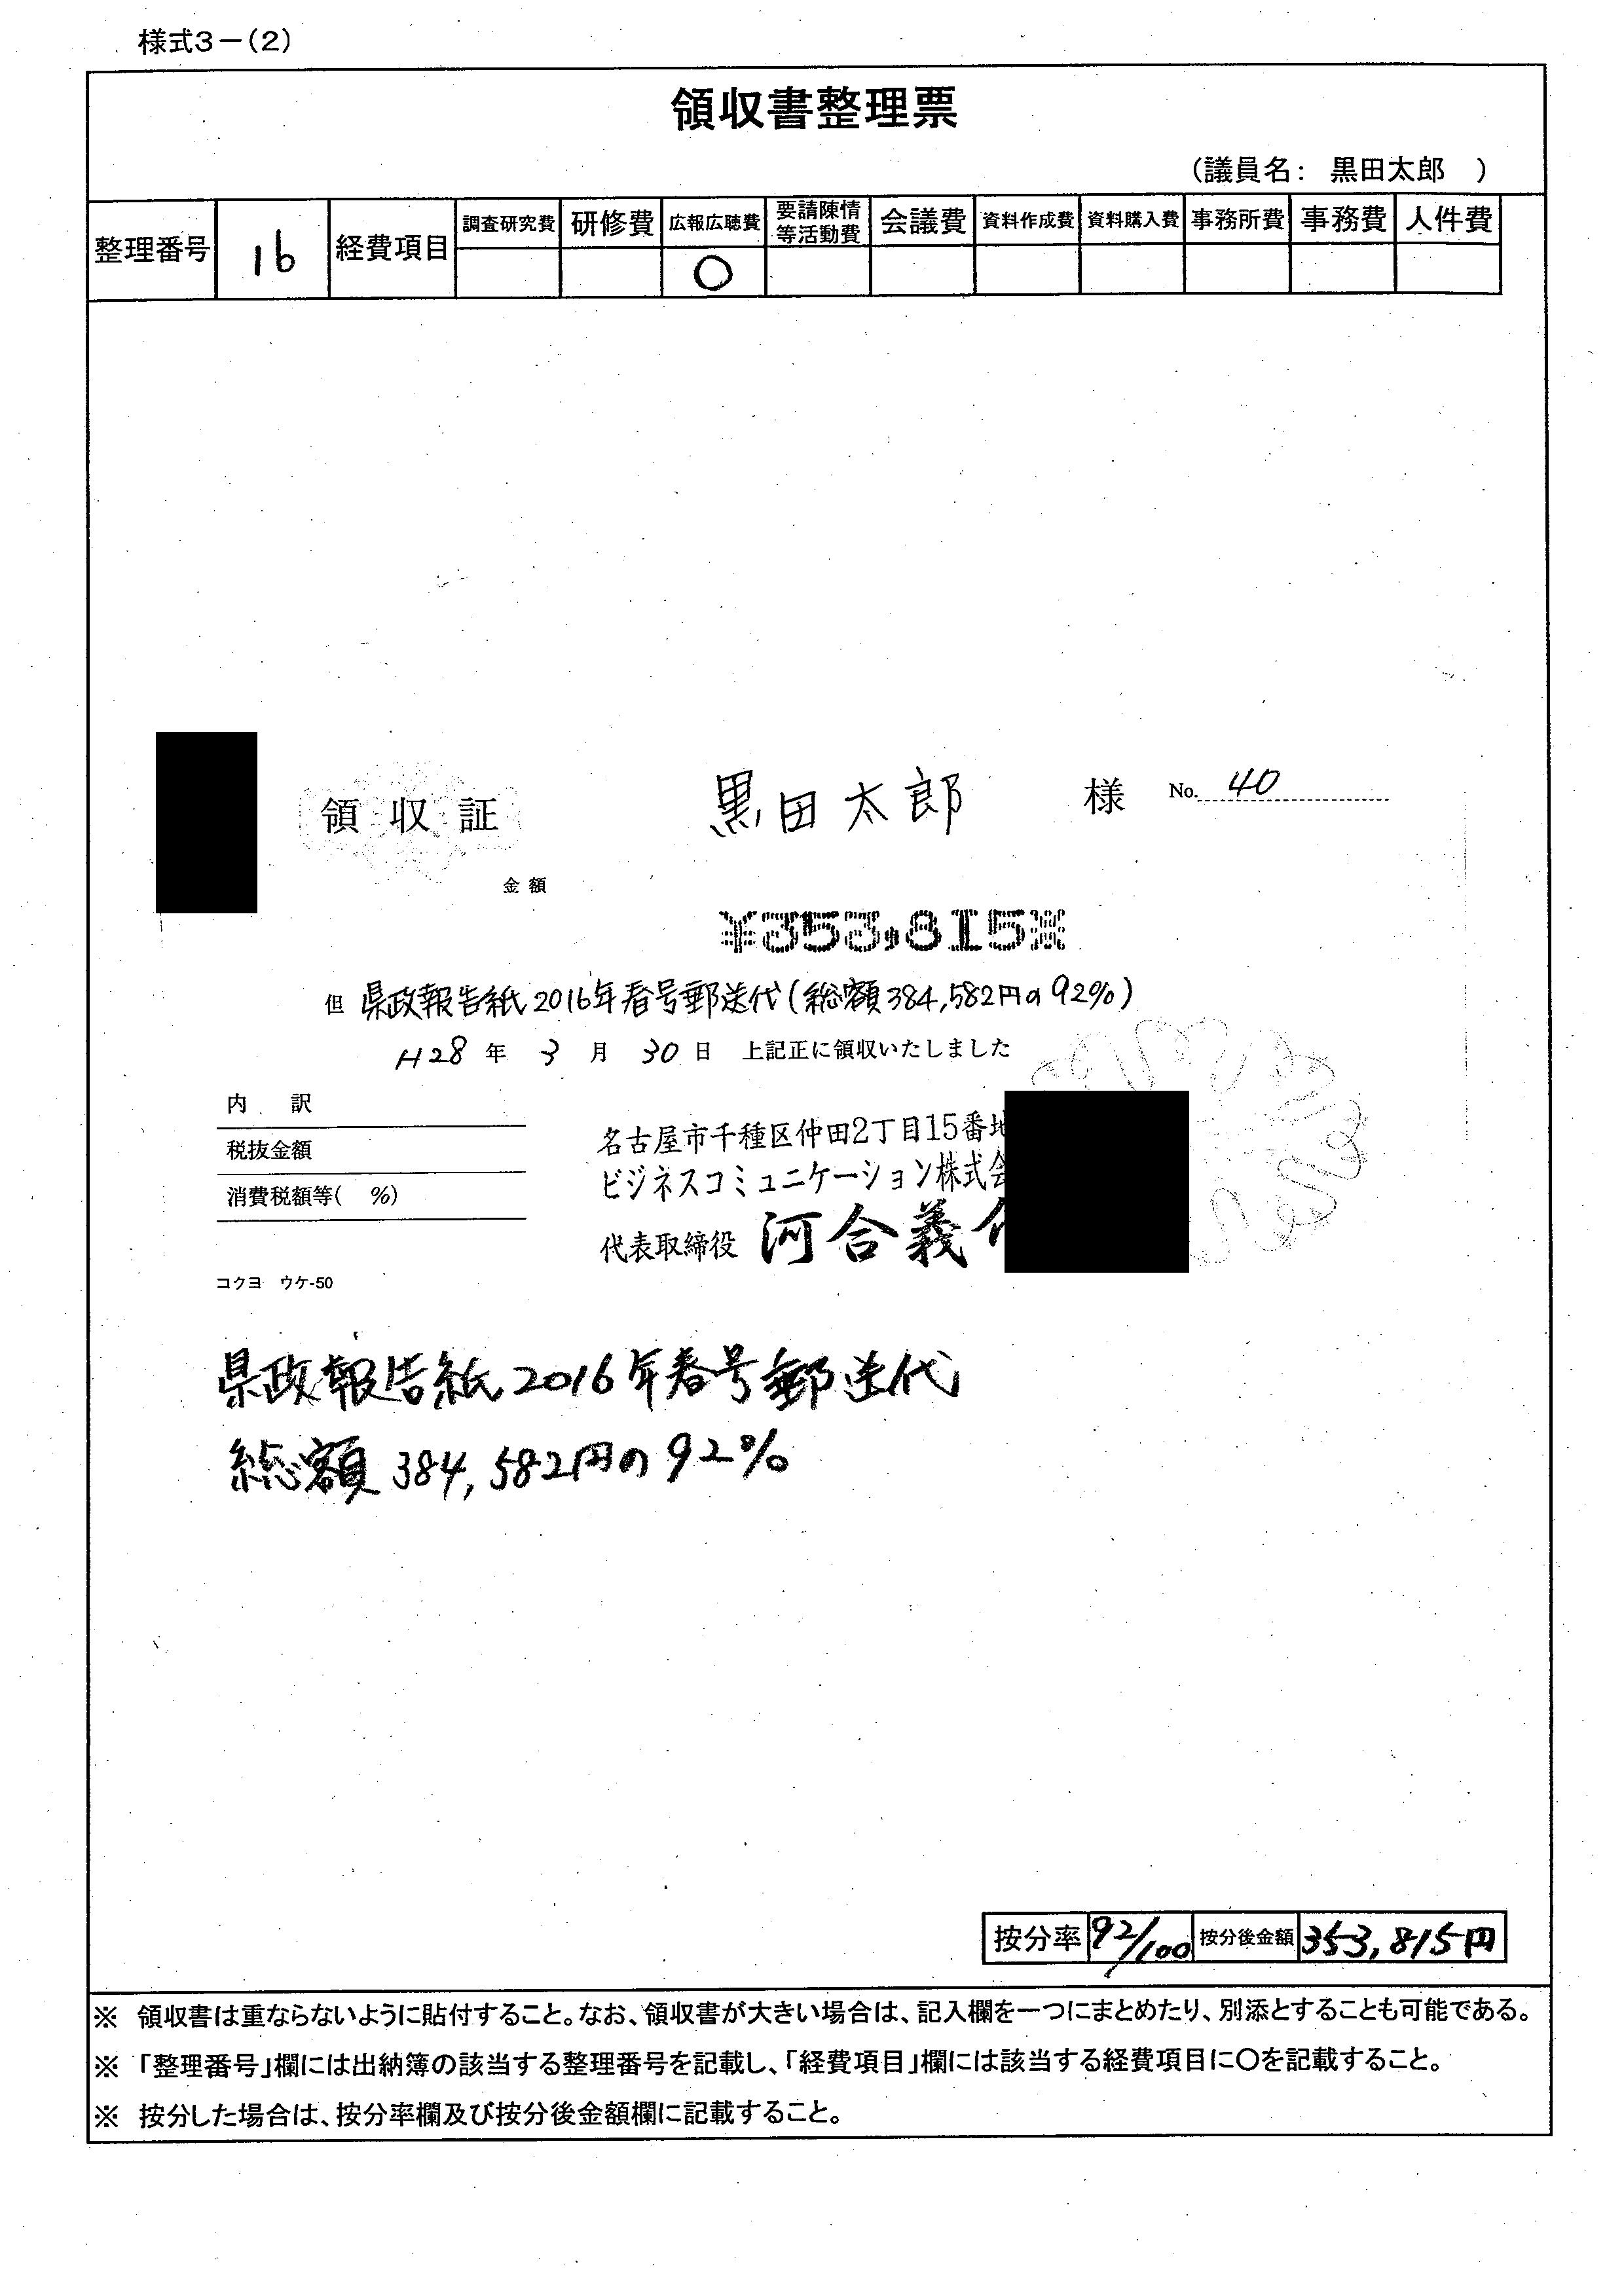 様式3-(2)
領収書整理票
(議員名: 黒田太郎 )
整理番号 16 経費項目 調査研究費 研修費 広報広聴費 要請陳情等活動費 会議費 資料作成費 資料購入費 事務所費 事務費 人件費
○
領収証 黒田太郎 様 No. 40
金額
¥353,815※
但 県政報告紙2016年春号郵送代(総額384,582円の92%)
H28年 3月 30日 上記正に領収いたしました
内訳
税抜金額
消費税額等( %)
名古屋市千種区仲田2丁目15番地
ビジネスコミュニケーション株式会
代表取締役 河合義
コクヨ ウケ-50
県政報告紙2016年春号郵送代
総額384,582円の92%
按分率 92/100 按分後金額 353,815円
※ 領収書は重ならないように貼付すること。なお、領収書が大きい場合は、記入欄を一つにまとめたり、別添とすることも可能である。
※ 「整理番号」欄には出納簿の該当する整理番号を記載し、「経費項目」欄には該当する経費項目に○を記載すること。
※ 按分した場合は、按分率欄及び按分後金額欄に記載すること。